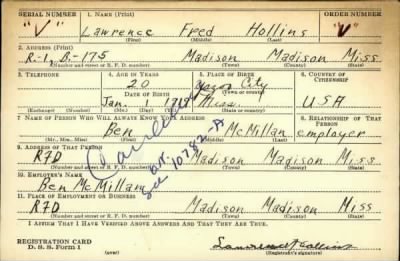 SERIAL NUMBER 1. NAME (Print) ORDER NUMBER
"V" Lawrence Fred Hollins "V"
(First) (Middle) (Last)
2. ADDRESS (Print)
R-1, B-175 Madison Madison Miss
(Number and street or R. F. D. number) (Town) (County) (State)
3. TELEPHONE 4. AGE IN YEARS 5. PLACE OF BIRTH 6. COUNTRY OF CITIZENSHIP
20 City
DATE OF BIRTH (Town or county)
Jan. 1 Miss. USA
(Exchange) (Number) (Mo.) (Day) (Yr.) (State or country)
7. NAME OF PERSON WHO WILL ALWAYS KNOW YOUR ADDRESS 8. RELATIONSHIP OF THAT PERSON
Ben McMillan employer
(Mr., Mrs., Miss) (First) (Middle) (Last)
9. ADDRESS OF THAT PERSON
RFD Madison Madison Miss
(Number and street or R. F. D. number) (Town) (County) (State)
10. EMPLOYER'S NAME
Ben McMillam
11. PLACE OF EMPLOYMENT OR BUSINESS
RFD Madison Madison Miss
(Number and street or R. F. D. number) (Town) (County) (State)
I AFFIRM THAT I HAVE VERIFIED ABOVE ANSWERS AND THAT THEY ARE TRUE.
REGISTRATION CARD
D. S. S. Form 1 (over) (Registrant's signature)
Cancelled
10782-A